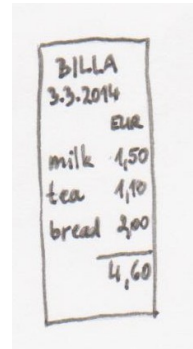 BILLA
3.3.2014
EUR
milk 1,50
tea 1,10
bread 2,00
4,60